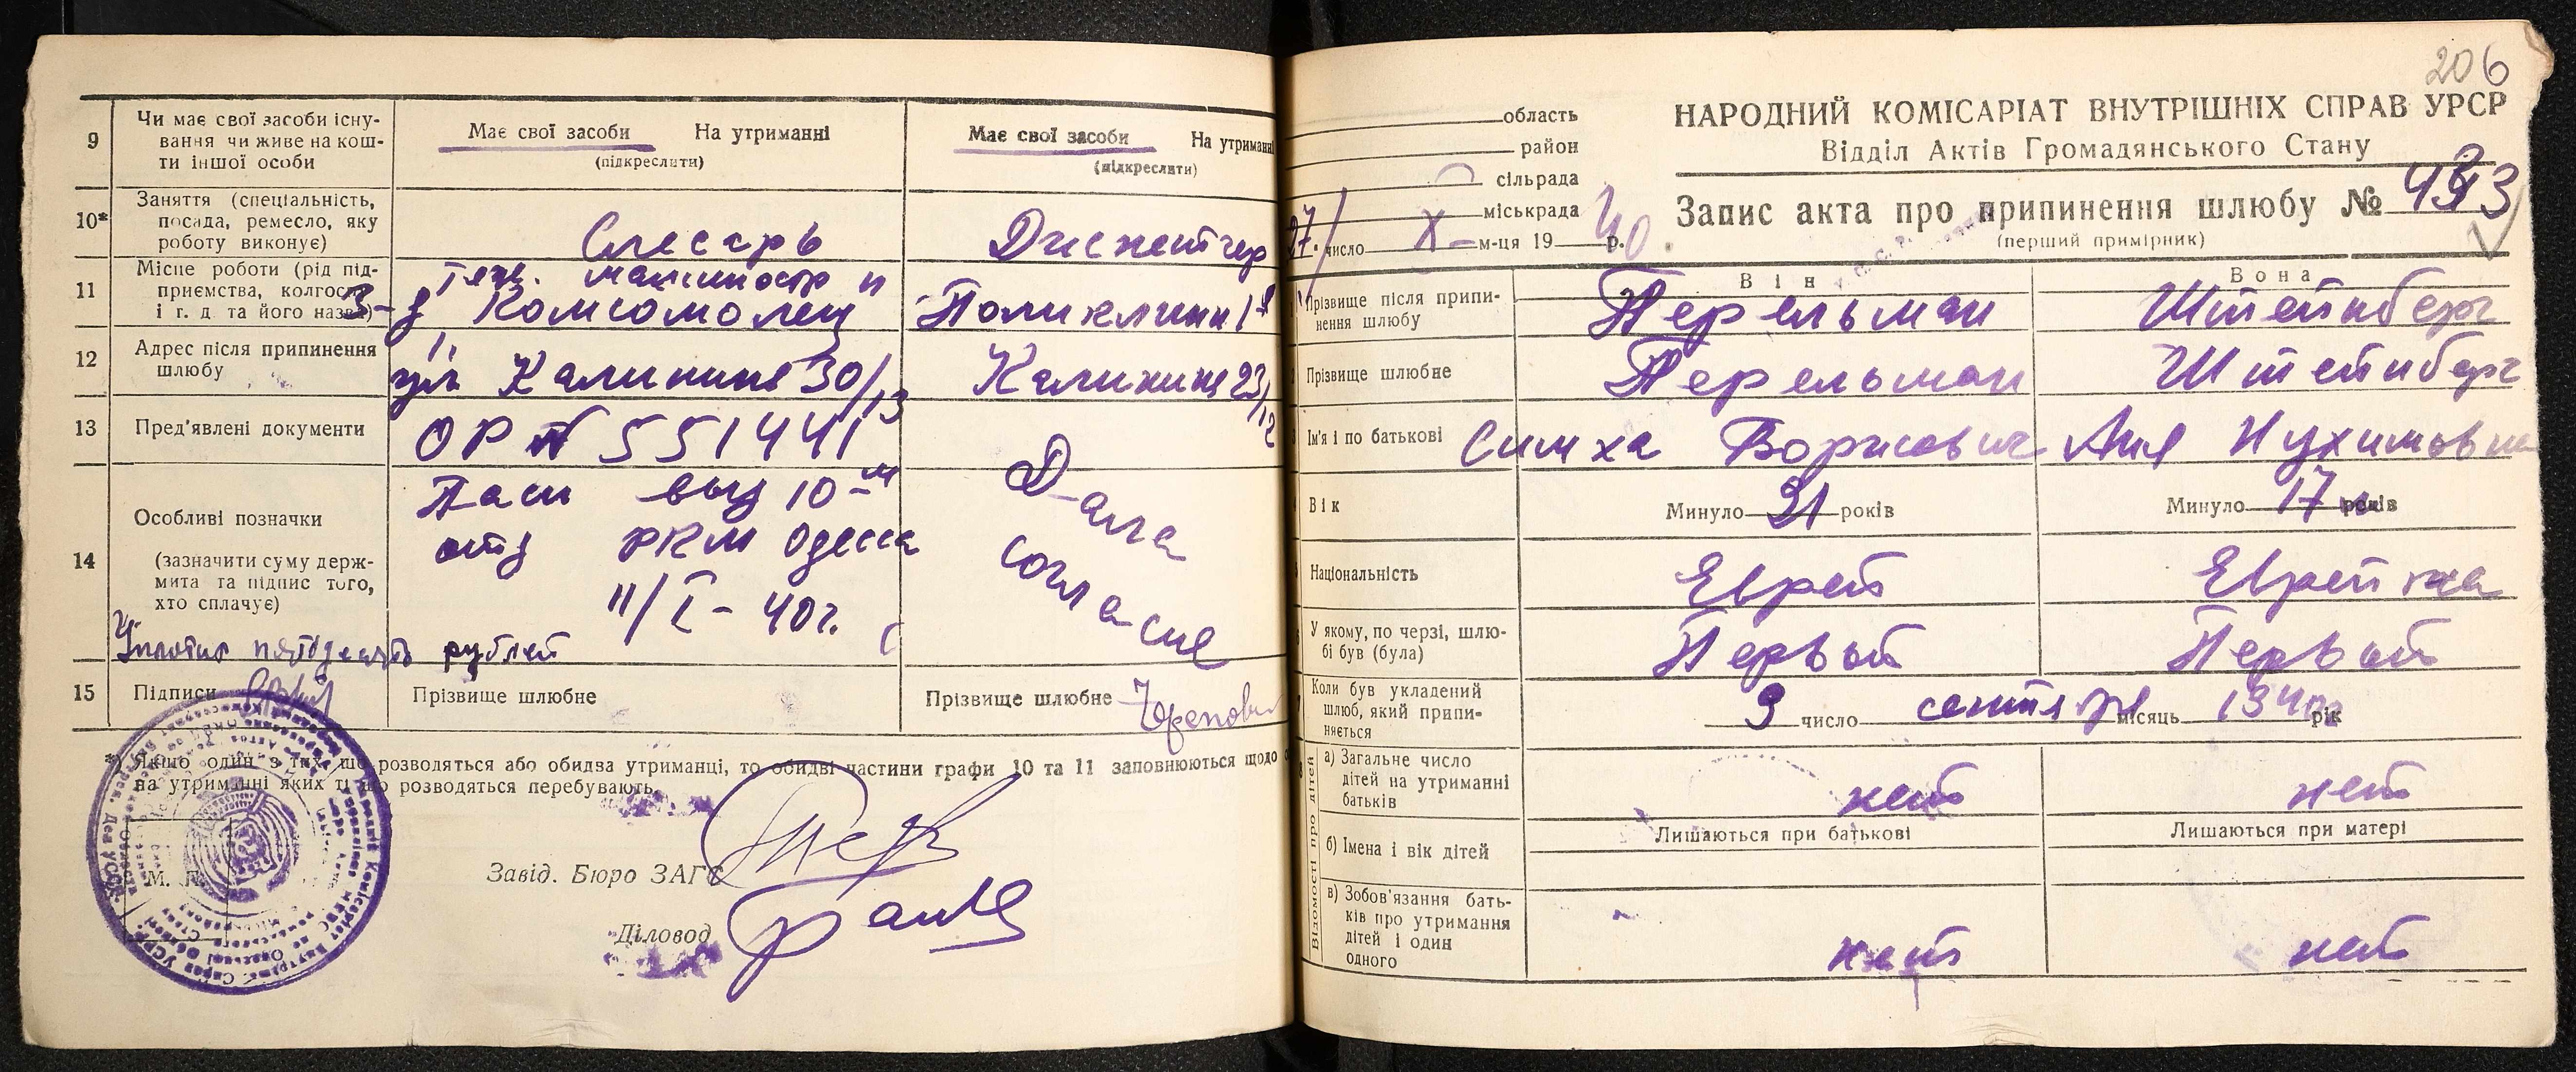 9
Чи має свої засоби існу-
вання чи живе на кош-
ти іншої особи
Має свої засоби На утриманні
(підкреслити)
Має свої засоби На утриманні
(підкреслити)
10*
Заняття (спеціальність,
посада, ремесло, яку
роботу виконує)
Слесарь
Диспетчер
11
Місце роботи (рід під-
приємства, колгосп
і т. д. та його назва)
З-д Комсомолец
Поликлин
12
Адрес після припинення
шлюбу
ул Калинина 30/13
Калинина 23/12
13
Пред'явлені документи
ОР № 551441
14
Особливі позначки
(зазначити суму держ-
мита та підпис того,
хто сплачує)
Уплатил пятьдесять рублей
Пасп выд 10-м
отд РКМ Одесса
11/I-40г.
Дала
согласие
15
Підписи
Прізвище шлюбне
Прізвище шлюбне
*) Якщо один з тих що розводяться або обидва утриманці, то обидві частини графи 10 та 11 заповнюються щодо
на утриманні яких ті що розводяться перебувають.
М. П.
Завід. Бюро ЗАГС
Діловод
206
область
район
сільрада
міськрада
27. число X м-ця 1940 р.
НАРОДНИЙ КОМІСАРІАТ ВНУТРІШНІХ СПРАВ УРСР
Відділ Актів Громадянського Стану
Запис акта про припинення шлюбу №
(перший примірник)
Він
Вона
1
Прізвище після припи-
нення шлюбу
Перельман
Штейнберг
2
Прізвище шлюбне
Перельман
Штейнберг
3
Ім'я і по батькові
Симха Борисович
Аня Нухимовна
4
Вік
Минуло 21 років
Минуло 17 років
5
Національність
Еврей
Еврейка
6
У якому, по черзі, шлю-
бі був (була)
Первый
Первый
7
Коли був укладений
шлюб, який припи-
няється
9 число сентября місяць 1940 рік
Відомості про дітей
а) Загальне число
дітей на утриманні
батьків
нет
нет
б) Імена і вік дітей
Лишаються при батькові
Лишаються при матері
в) Зобов'язання бать-
ків про утримання
дітей і один
одного
нет
нет